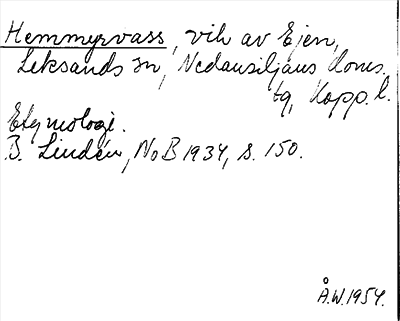 Hemmyrvass, vik av Ejen,
Leksands sn, Nedansiljans doms.
tg, Kopp. l.
Etymologi.
B. Lindén, NoB 1934, s. 150.
Å.W. 1954.